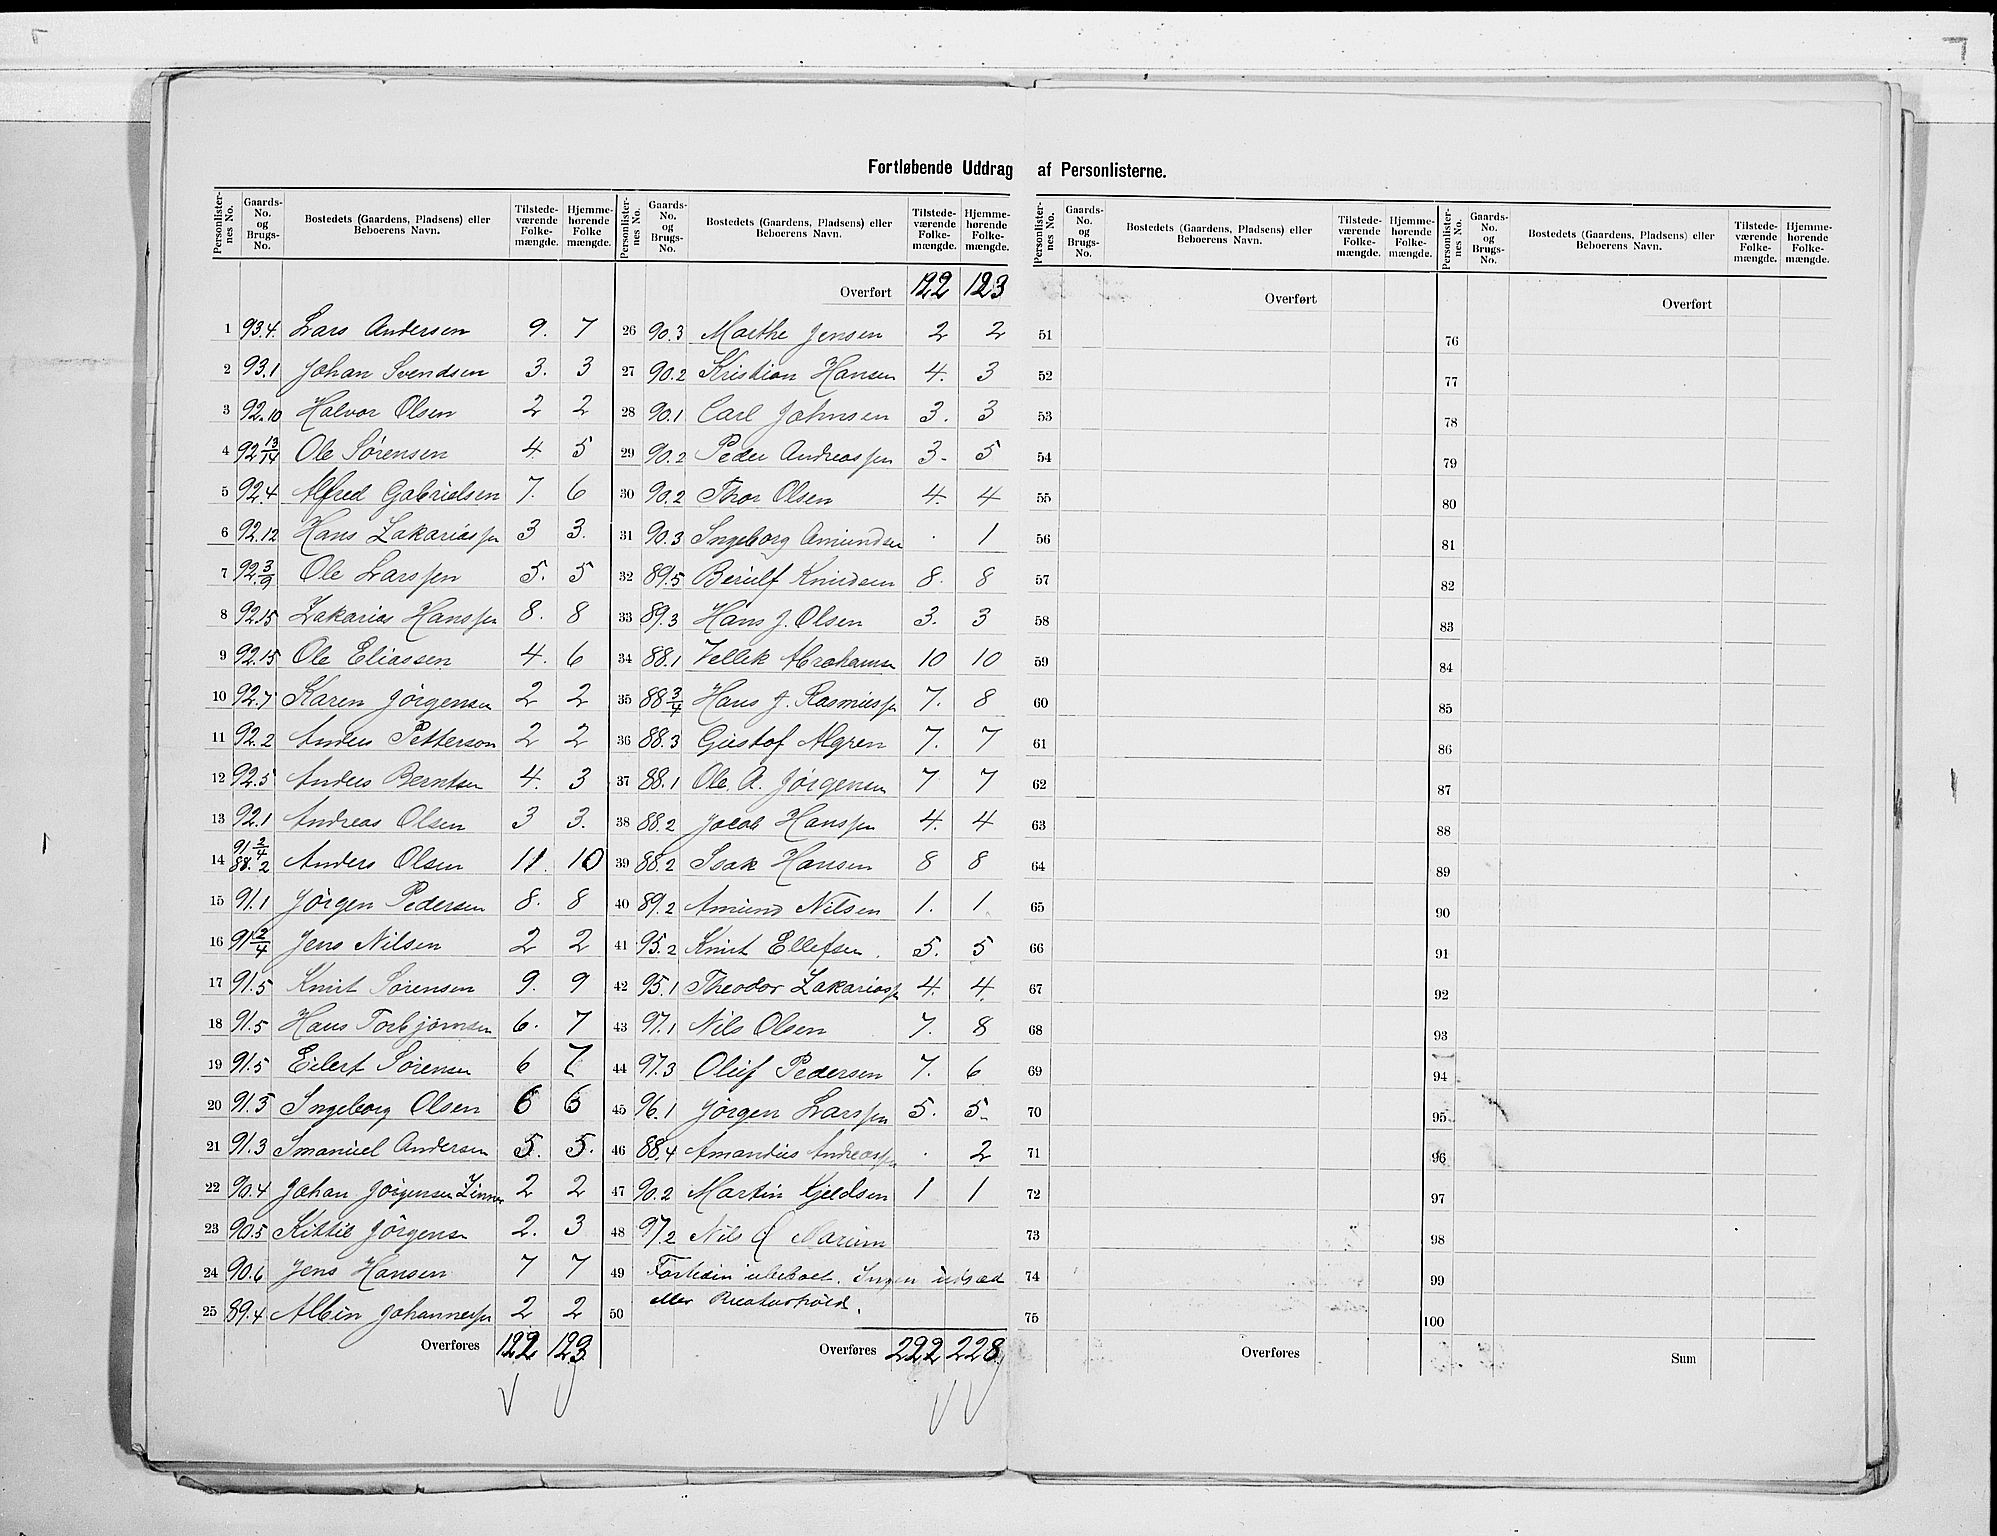 Fortløbende Uddrag af Personlisterne.
Personlister-nes No. Gaards-No. og Brugs-No. Bostedets (Gaardens, Pladsens) eller Beboerens Navn. Tilstede-værende Folke-mængde. Hjemme-hørende Folke mængde.
1 93.4. Lars Andersen 9. 7
2 93.1 Johan Svendsen 3. 3
3 92.10 Halvor Olsen 2 2
4 92 13/14 Ole Sørensen 4. 5
5 92.4 Alfred Gabrielsen 7. 6
6 92.12 Hans Zakariassen 3 3.
7 92 3/9 Ole Larssen 5. 5
8 92.15 Zakarias Hanssen 8. 8
9 92.15 Ole Eliassen 4. 6
10 92.7 Karen Jørgensen 2 2
11 92.2 Anders Petterson 2 2
12 92.5 Anders Berntsen 4. 3
13 92.1 Andreas Olsen 3 3.
14 91 2/4 88.2 Anders Olsen 11. 10
15 91.1 Jørgen Pedersen 8. 8
16 91 2/4 Jens Nilsen 2 2
17 91.5 Knut Sørensen 9. 9
18 91.5 Hans Torbjørnsen 6. 7
19 91.5 Eilert Sørensen 6 7
20 91.3 Ingeborg Olsen 6 6
21 91.3 Imanuel Andersen 5. 5.
22 90.4 Johan Jørgensen 2 2
23 90.5 Kittil Jörgensn 2. 3
24 90.6 Jens Hansen 7 7
25 89.4 Albin Johannessen 2 2
Overføres 122 123
Personlister-nes No. Gaards-No. og Brugs-No. Bostedets (Gaardens, Pladsens) eller Beboerens Navn. Tilstede-værende Folke-mængde. Hjemme-hørende Folke-mængde.
Overført 122 123
26 90.3 Marthe Jensen 2 2
27 90.2 Kristian Hansen 4. 3
28 90.1 Carl Johnsen 3. 3
29 90.2 Peder Andreassen 3. 5
30 90.2 Thor Olsen 4. 4
31 90.3 Ingeborg Amundsen . 1
32 89.5 Beriulf Knudsen 8. 8
33 89.3 Hans J. Olsen 3. 3
34 88.1 Vellik Abrahamsn 10 10
35 88 3/4 Hans J. Rasmussen 7. 8
36 88.3 Gustof Algren 7. 7
37 88.1 Ole. A. Jørgensen 7 7
38 88.2 Jacob Hanssen 4. 4
39 88.2 Isak Hansen 8 8
40 89.2 Amund Nilsen 1. 1
41 95.2 Knut Ellefsen. 5. 5
42 95.1 Theodor Zakariassen 4. 4.
43 97.1 Nils Olsen 7. 8
44 97.3 Oluf Pedersen 7. 6
45 96.1 Jørgen Larssen 5. 5.
46 88.4 Amandus Andreassen . 2
47 90.2 Martin Kjeldsen 1 1
48 97.2 Nils O Narum
49 Fortiden ubeboet. Ingen udsæd
50 eller Kreaturhold.
Overføres 222 228
Personlister-nes No. Gaards-No. og Brugs-No. Bostedets (Gaardens, Pladsens) eller Beboerens Navn. Tilstede-værende Folke-mængde. Hjemme-hørende Folke-mængde.
Overført
51
52
53
54
55
56
57
58
59
60
61
62
63
64
65
66
67
68
69
70
71
72
73
74
75
Overføres
Personlister-nes No. Gaards-No. og Brugs-No. Bostedets (Gaardens, Pladsens) eller Beboerens Navn. Tilstede-værende Folke-mængde. Hjemme-hørende Folke-mængde.
Overført
76
77
78
79
80
81
82
83
84
85
86
87
88
89
90
91
92
93
94
95
96
97
98
99
100
Sum